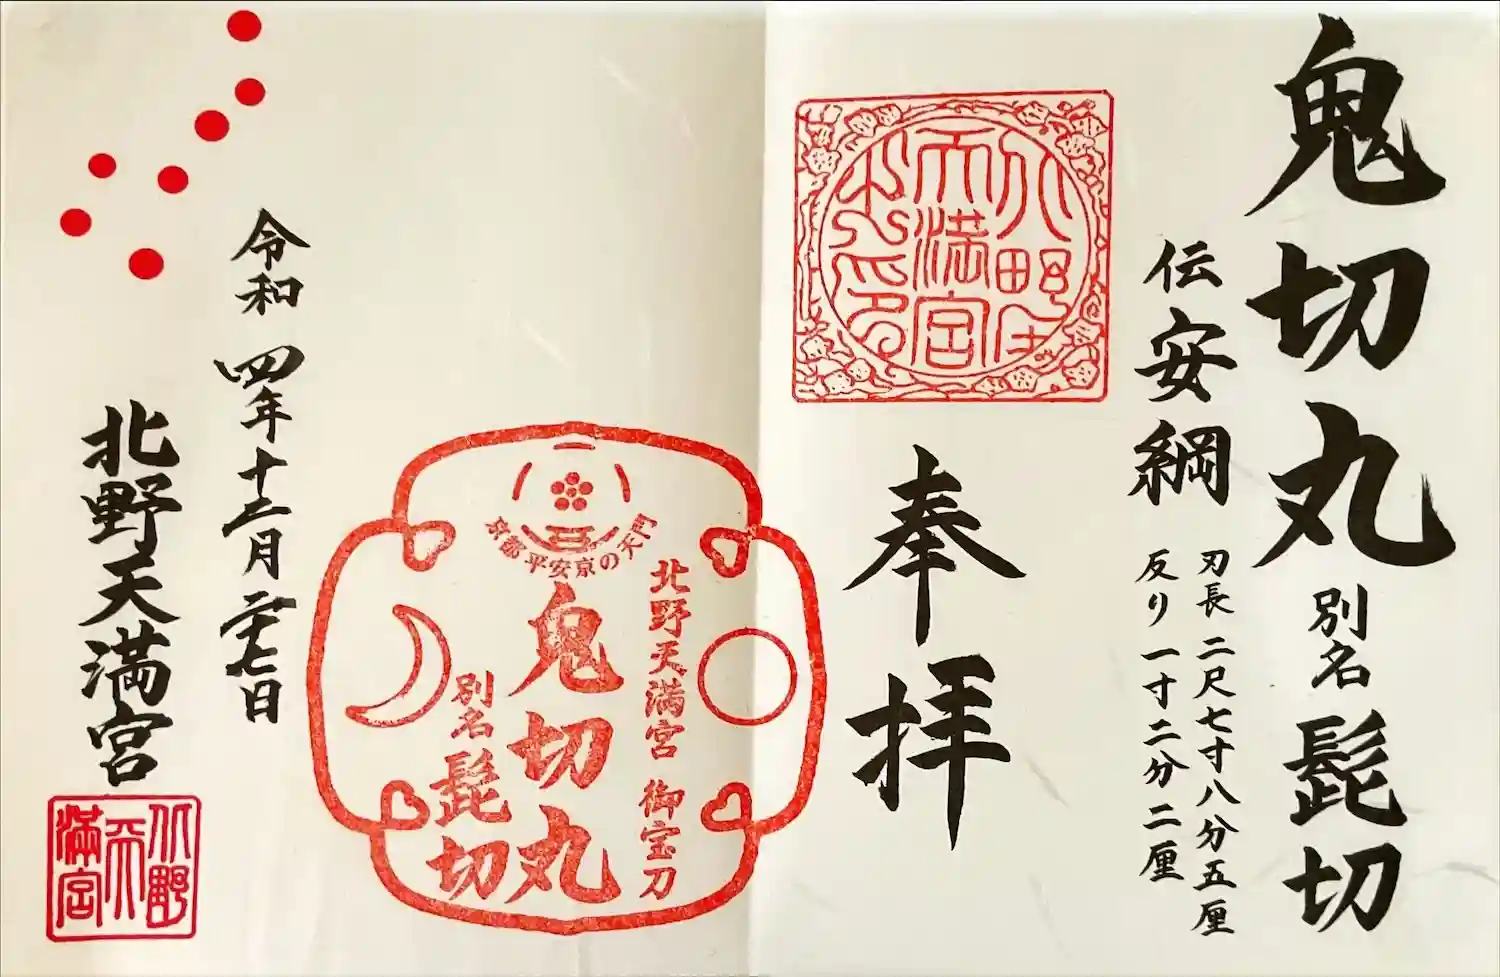 鬼切丸 別名 髭切
伝 安綱
刃長 二尺七寸八分五厘
反り 一寸二分二厘
北野
天満宮
之印
奉拝
京都 平安京の天門
北野天満宮 御宝刀
鬼切丸
別名 髭切
令和四年十二月二十七日
北野天満宮
北野
天
満宮